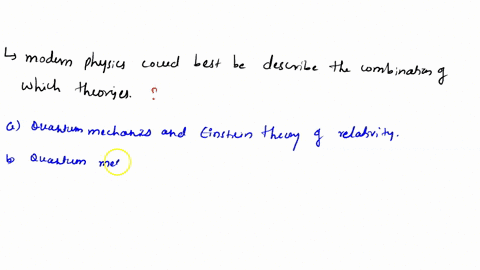 ↳ modern physics could best be describe the combination of
which theories. ?
a) Quantum mechanics and Einstein theory of relativity.
b) Quantum me